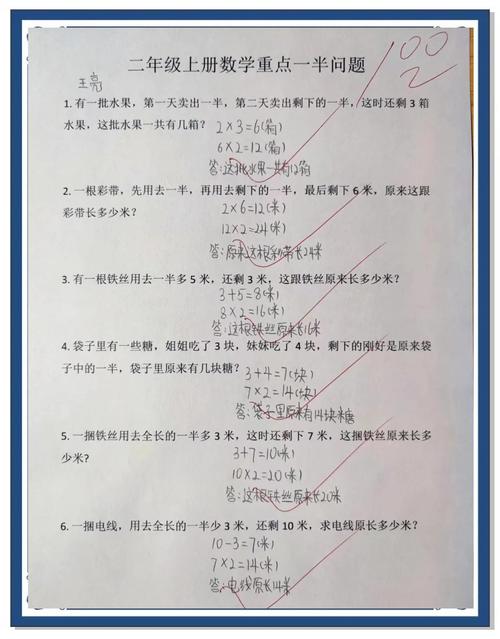 二年级上册数学重点一半问题
100
2
王亮
1. 有一批水果，第一天卖出一半，第二天卖出剩下的一半，这时还剩 3 箱
水果，这批水果一共有几箱？
2×3=6(箱)
6×2=12(箱)
答:这批水果一共有12箱
2. 一根彩带，先用去一半，再用去剩下的一半，最后剩下 6 米，原来这跟
彩带长多少米？
2×6=12(米)
12×2=24(米)
答:原来这根彩带长24米
3. 有一根铁丝用去一半多 5 米，还剩 3 米，这跟铁丝原来长多少米？
3+5=8(米)
8×2=16(米)
答:这根铁丝原来长16米
4. 袋子里有一些糖，姐姐吃了 3 块，妹妹吃了 4 块，剩下的刚好是原来袋
子中的一半，袋子里原来有几块糖？
3+4=7(块)
7×2=14(块)
答:袋子里原来有14块糖
5. 一捆铁丝用去全长的一半多 3 米，这时还剩下 7 米，这捆铁丝原来长多
少米?
3+7=10(米)
10×2=20(米)
答:这根铁丝原来长20米
6. 一捆电线，用去全长的一半少 3 米，还剩 10 米，求电线原长多少米？
10-3=7(米)
7×2=14(米)
答:电线原长14米